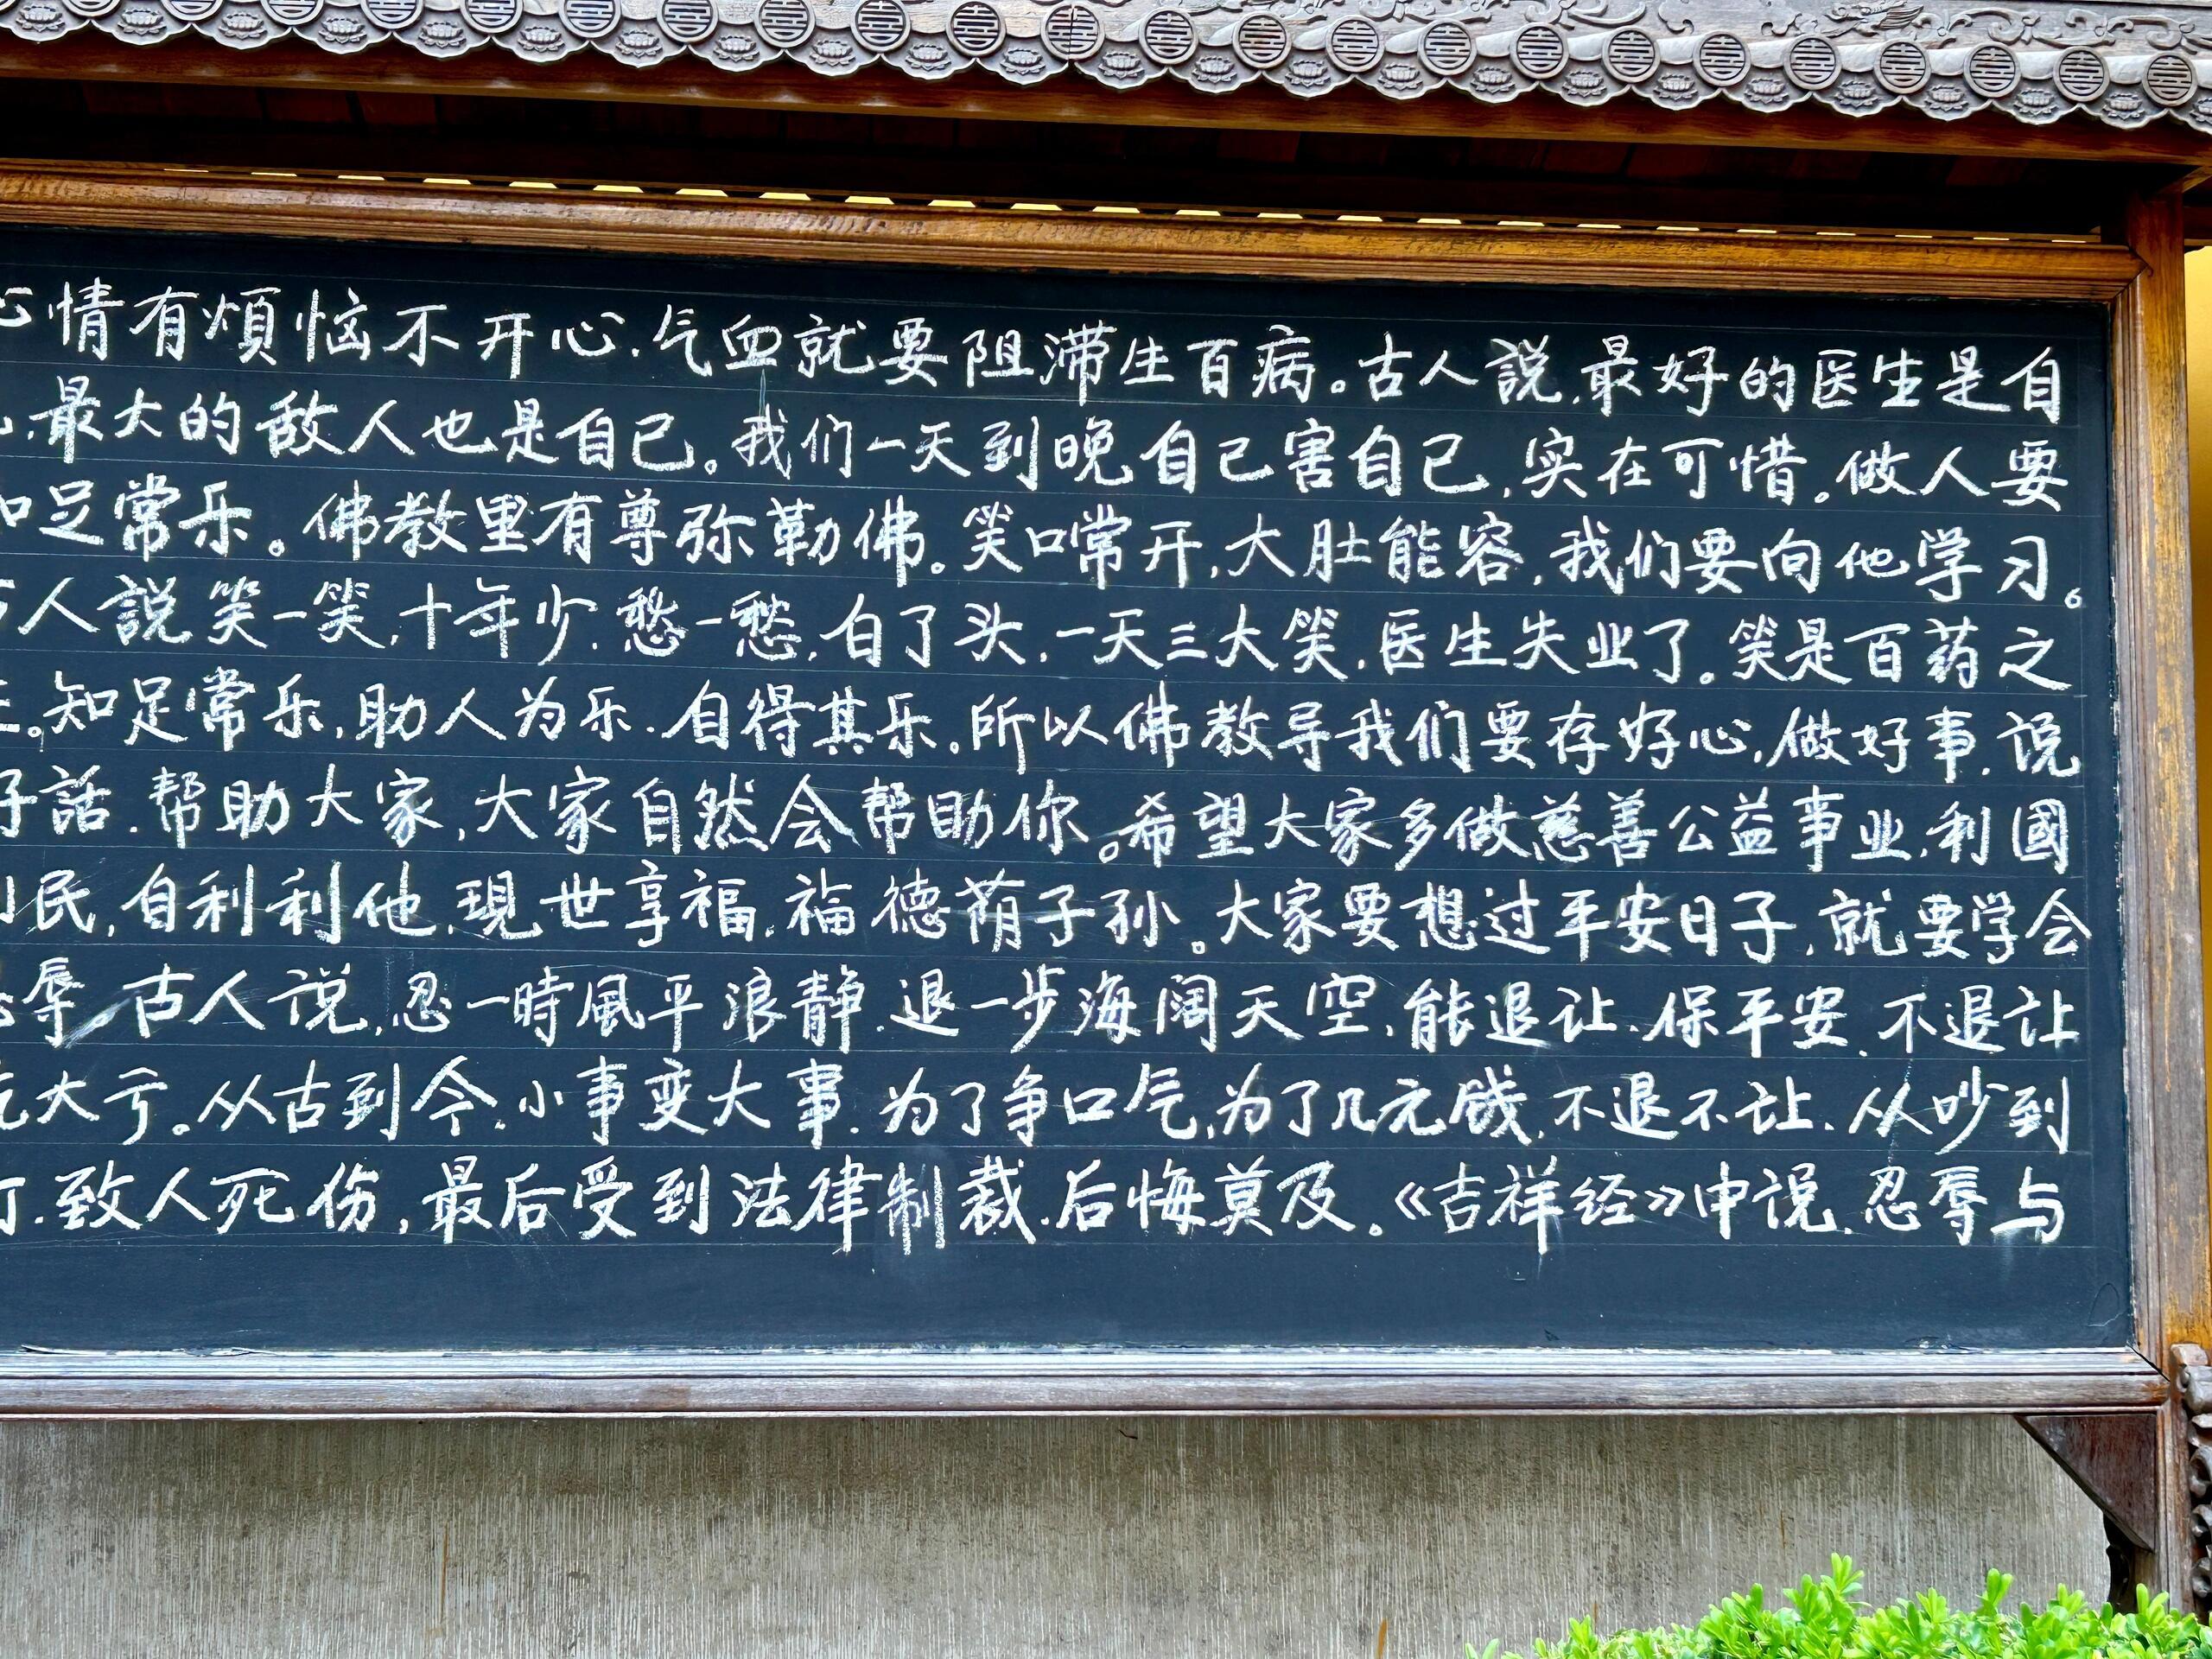 心情有煩恼不开心.气血就要阻滞生百病。古人説.最好的医生是自
.最大的敌人也是自己。我们一天到晚自己害自己,实在可惜。做人要
知足常乐。佛教里有尊弥勒佛。笑口常开,大肚能容,我们要向他学习。
人説笑一笑,十年少.愁一愁,白了头,一天三大笑.医生失业了。笑是百药之
。知足常乐,助人为乐.自得其乐。所以佛教导我们要存好心,做好事.说
好話.帮助大家,大家自然会帮助你。希望大家多做慈善公益事业.利國
利民,自利利他.現世享福.福德荫子孙。大家要想过平安日子,就要学会
忍辱。古人说,忍一時風平浪静.退一步海阔天空.能退让.保平安.不退让
吃大亏。从古到今.小事变大事.为了争口气,为了几元钱.不退不让.从吵到
打.致人死伤,最后受到法律制裁.后悔莫及。《吉祥经》中说.忍辱与